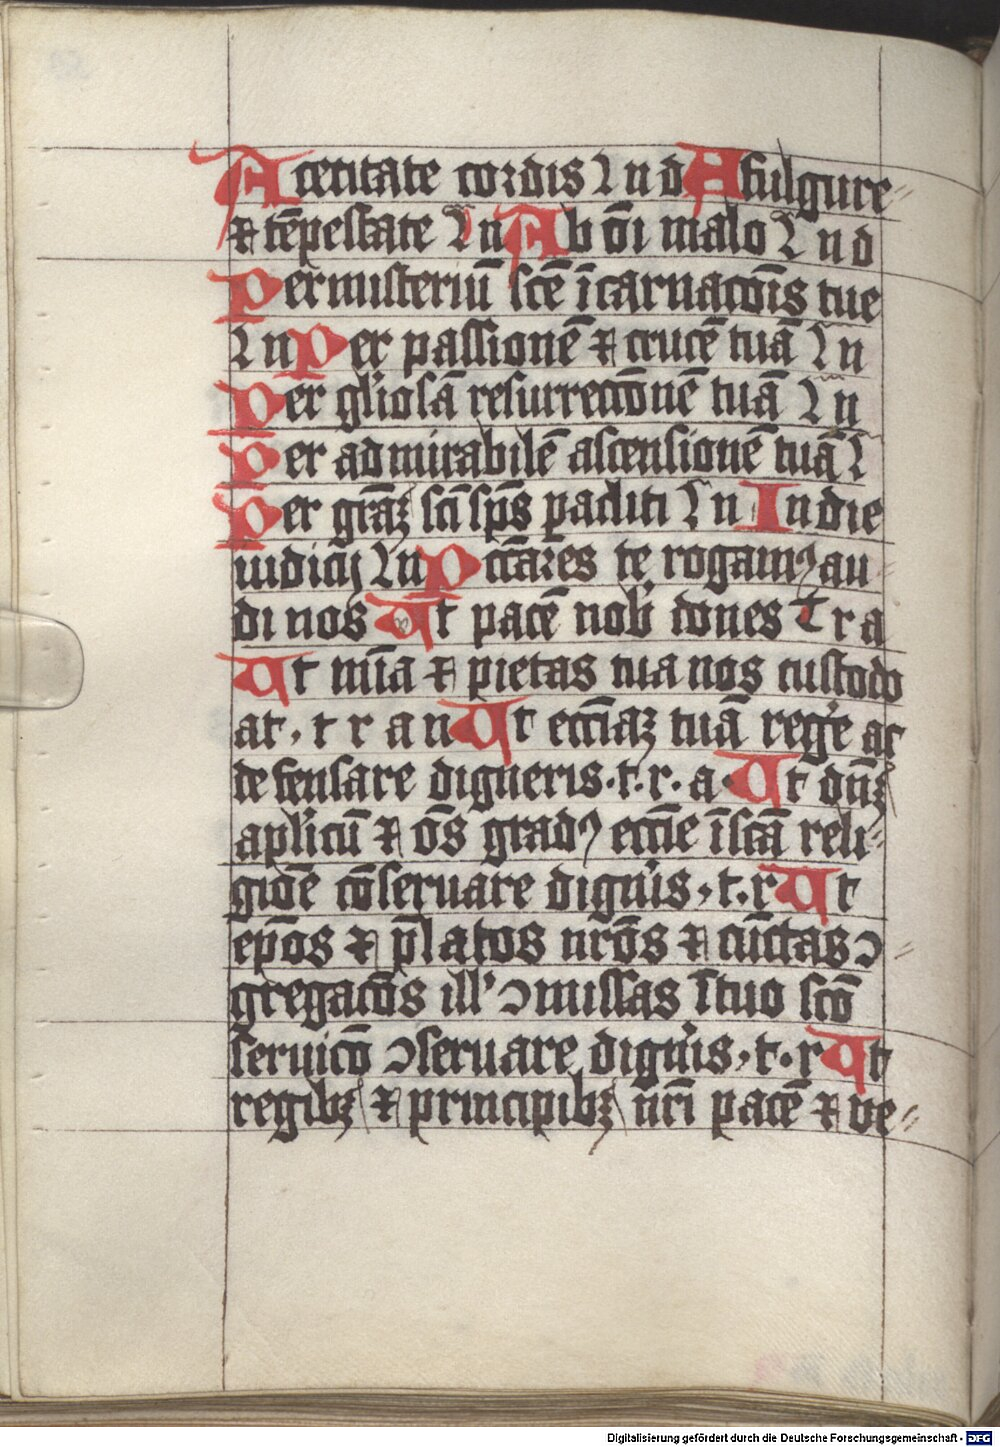 A cecitate cordis L n d A fulgure
⁊ tēpestate L n Ab oī malo L n d
Per misteriū scē īcarnacōis tue
L n Per passionē ⁊ crucē tuā L n
Per gl'iosā resurrectōnē tuā L n
Per admirabilē ascensionē tuā L
Per grāꝫ sc̄i sp̄s paracliti L n In die
iudicij L n Pctāres te rogamꝰ au
di nos Ut pacē nob' dones T r a
Ut mīa ⁊ pietas tua nos custodi
at . t r a n Ut eccīaꝫ tuā reg'e ac
defensare digneris . t . r . a . Ut dn̄ꝫ
aplicū ⁊ oēs gradꝰ eccīe ī scā reli
giōe cōseruare dignīs . t . r Ut
epōs ⁊ p̄latos nrōs ⁊ cūctas ↄ
gregacōs ill' ↄmissas ī tuo scō
seruicō ↄseruare dignīs . t . r Ut
regibꝫ ⁊ principibꝫ nr̄i pacē ⁊ ve
Digitalisierung gefördert durch die Deutsche Forschungsgemeinschaft - DFG